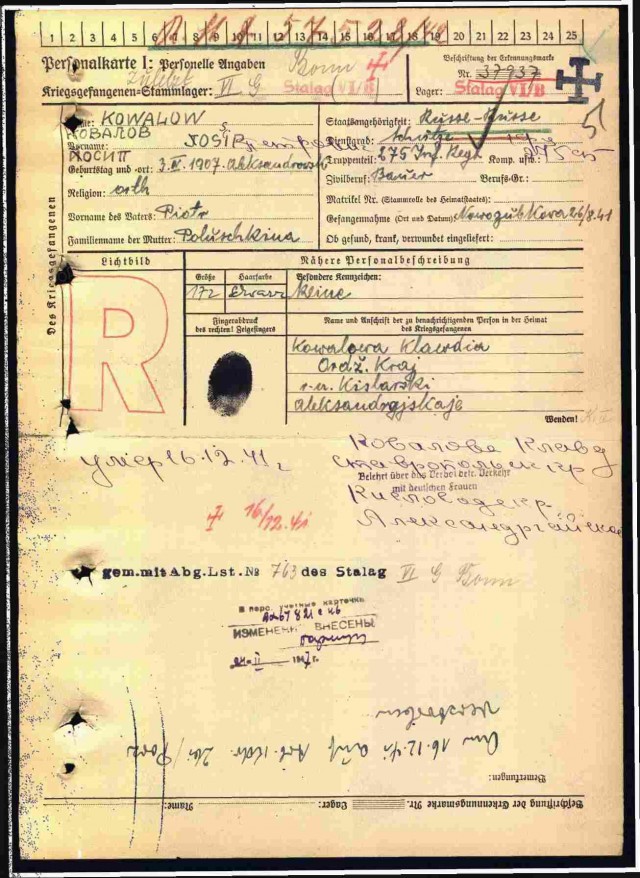 1 2 3 4 5 6 7 8 9 10 11 12 13 14 15 16 17 18 19 20 21 22 23 24 25
Personalkarte I: Personelle Angaben
Bonn
Beschriftung der Erkennungsmarke
Nr. 37937
Kriegsgefangenen-Stammlager: VI G Stalag VI/B
Lager: Stalag VI/B
Des Kriegsgefangenen
Name: KOWALOW
КОВАЛОВ
Vorname: JOSIP
ИОСИП
Geburtstag und -ort: 3.IV.1907. Aleksandrowsk
Religion: orth
Vorname des Vaters: Piotr
Familienname der Mutter: Poluschkina
Staatsangehörigkeit: Russe-Russe
Dienstgrad: Schütze
Truppenteil: 275 Inf. Regt. Komp. usw.:
Zivilberuf: Bauer Berufs-Gr.:
Matrikel Nr. (Stammrolle des Heimatstaates):
Gefangennahme (Ort und Datum): Nowozubkowa 26/8.41
Ob gesund, krank, verwundet eingeliefert:
Lichtbild
R
Nähere Personalbeschreibung
Größe Haarfarbe Besondere Kennzeichen:
172 schwarz Keine
Fingerabdruck
des rechten! Zeigefingers
Name und Anschrift der zu benachrichtigenden Person in der Heimat
des Kriegsgefangenen
Kowalowa Klawdia
Ordż. Kraj
r-n. Kislarski
Aleksandryjskaje
Wenden!
умер 16.12.41 г
Ковалова Клавд
Ставропольск кр
Belehrt über das Verbot betr. Verkehr
mit deutschen Frauen
16/12.41
gem.mit Abg.Lst.№ 763 des Stalag VI G Bonn
В перс. учетные карточки
ИЗМЕНЕНИЯ ВНЕСЕНЫ
1947г.
Am 16.12.41 auf Arb. Kdo.
Bemerkungen:
Beschriftung der Erkennungsmarke Nr. Lager: Name: